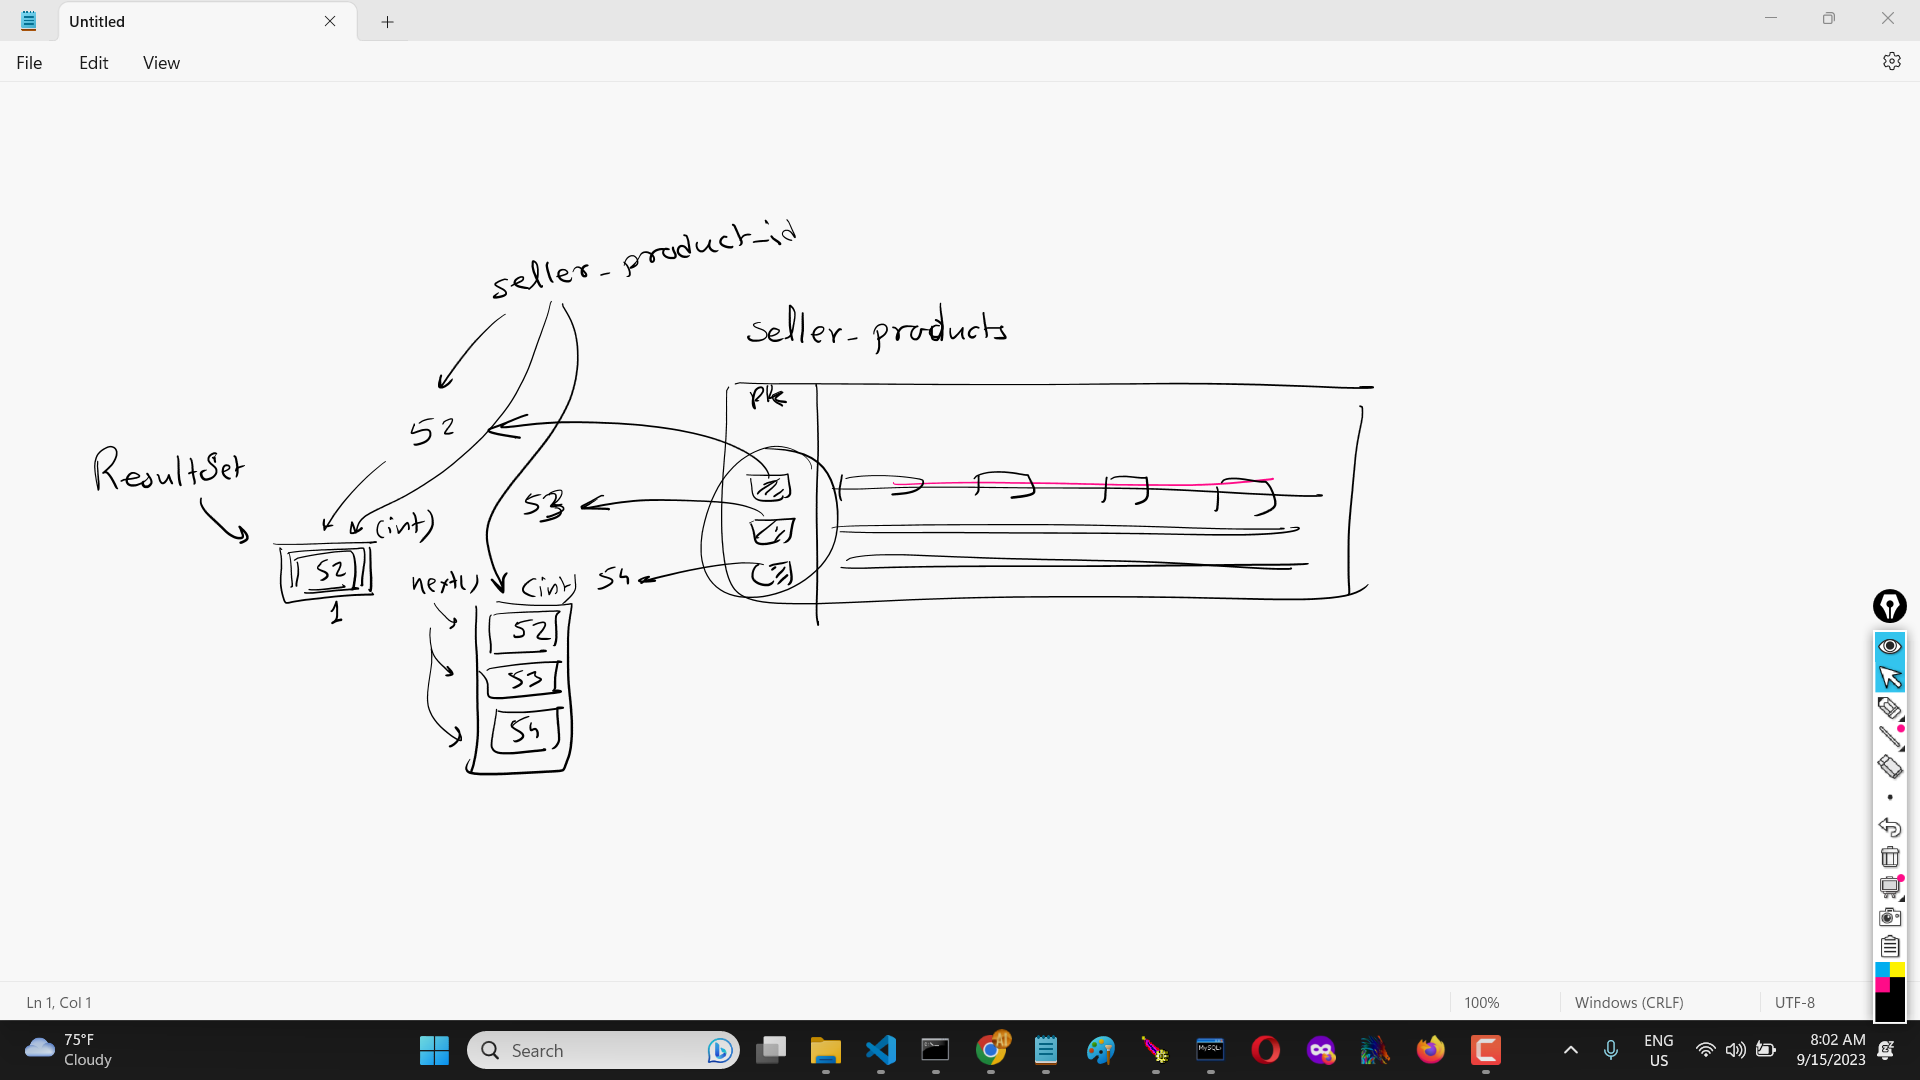 Untitled
File Edit View
seller_product_id
seller_products
pk
52
ResultSet
53
(int)
52
next()
(int)
54
1
52
53
54
Ln 1, Col 1
100%
Windows (CRLF)
UTF-8
75°F
Cloudy
Search
MySQL
AI
ENG
US
8:02 AM
9/15/2023